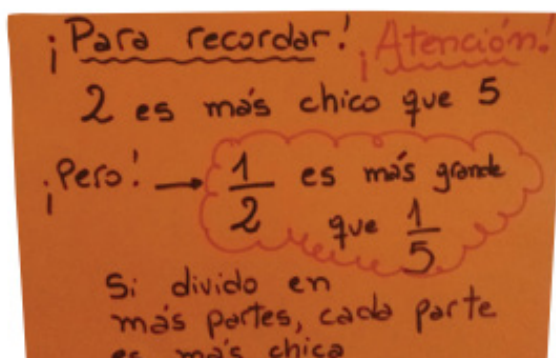 ¡Para recordar! ¡Atención!
2 es más chico que 5
¡Pero! → 1/2 es más grande
que 1/5
Si divido en
más partes, cada parte
es más chica